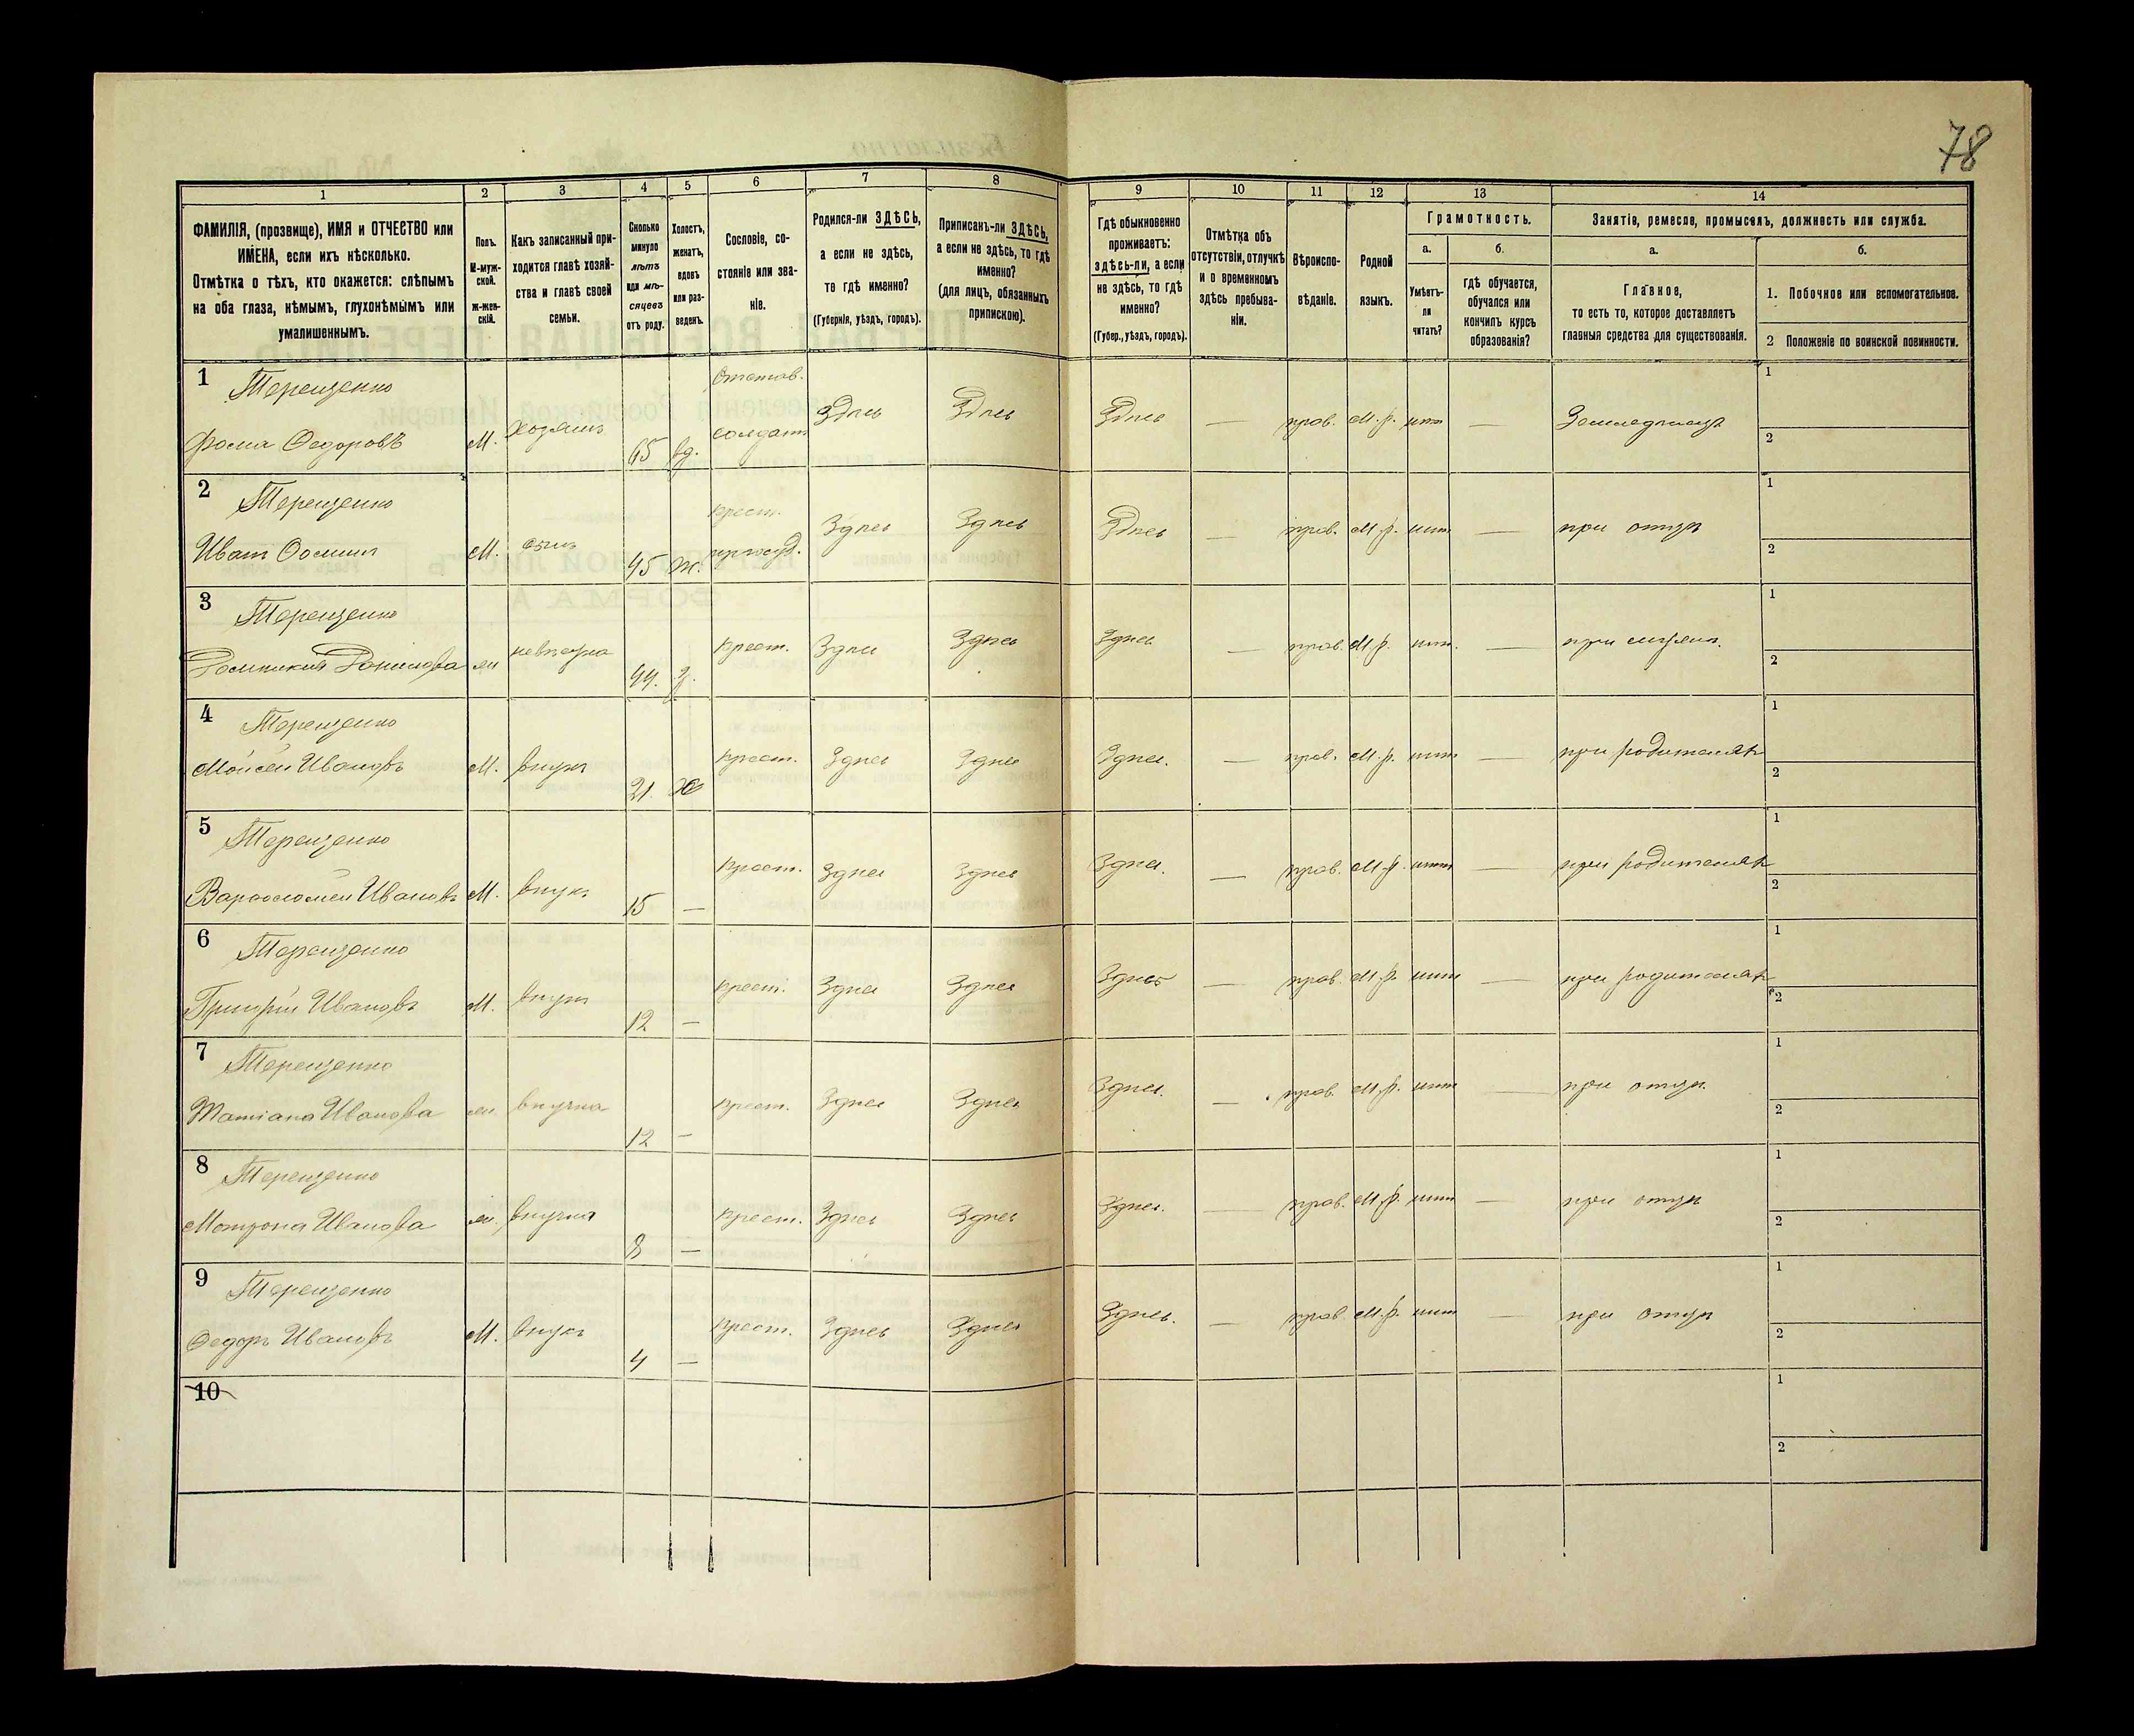 78
1
2
3
4
5
6
7
8
9
10
11
12
13
14
ФАМИЛІЯ, (прозвище), ИМЯ и ОТЧЕСТВО или
ИМЕНА, если ихъ нѣсколько.
Отмѣтка о тѣхъ, кто окажется: слѣпымъ
на оба глаза, нѣмымъ, глухонѣмымъ или
умалишеннымъ.
Полъ.
М-муж-
ской.
Ж-жен-
скій.
Какъ записанный при-
ходится главѣ хозяй-
ства и главѣ своей
семьи.
Сколько
минуло
лѣтъ
или мѣ-
сяцевъ
отъ роду.
Холостъ,
женатъ,
вдовъ
или раз-
веденъ.
Сословіе, со-
стояніе или зва-
ніе.
Родился-ли ЗДѢСЬ,
а если не здѣсь,
то гдѣ именно?
(Губернія, уѣздъ, городъ).
Приписанъ-ли ЗДѢСЬ,
а если не здѣсь, то гдѣ
именно?
(для лицъ, обязанныхъ
припискою).
Гдѣ обыкновенно
проживаетъ:
здѣсь-ли, а если
не здѣсь, то гдѣ
именно?
(Губер., уѣздъ, городъ).
Отмѣтка объ
отсутствіи, отлучкѣ
и о временномъ
здѣсь пребыва-
ніи.
Вѣроиспо-
вѣданіе.
Родной
языкъ.
Грамотность.
а.
Умѣетъ-
ли
читать?
б.
гдѣ обучается,
обучался или
кончилъ курсъ
образованія?
Занятіе, ремесло, промыселъ, должность или служба.
а.
Главное,
то есть то, которое доставляетъ
главныя средства для существованія.
б.
1. Побочное или вспомогательное.
2 Положеніе по воинской повинности.
1 Терещенко
Фома Федоровъ М. хозяинъ 65 вд. солдатъ Здѣсь Здѣсь Здѣсь — прав. М.р. нѣт — Земледѣлецъ 1 2
2 Терещенко
Иванъ Фоминъ М. сынъ 45 ж. крест. Здѣсь Здѣсь Здѣсь — прав. М.р. нѣт — при отцѣ 1 2
3 Терещенко
Домникия Данилова ж невѣстка 44. З. крест. Здѣсь Здѣсь Здѣсь — прав. М.р. нѣт. — при 1 2
4 Терещенко
Мойсей Ивановъ М. внукъ 21. Х крест. Здѣсь Здѣсь Здѣсь. — прав. М.р. нѣт — при родителяхъ 1 2
5 Терещенко
Варфоломей Ивановъ М. внукъ 15 — крест. Здѣсь Здѣсь Здѣсь. — прав. М.р. нѣт — при родителяхъ 1 2
6 Терещенко
Григорій Ивановъ М. внукъ 12 — крест. Здѣсь Здѣсь Здѣсь — прав. М.р. нѣт — при родителяхъ 1 2
7 Терещенко
Татіана Иванова ж. внучка 12 — крест. Здѣсь Здѣсь Здѣсь. — прав. М.р. нѣт — при отцѣ 1 2
8 Терещенко
Мотрона Иванова ж. внучка 8 — крест. Здѣсь Здѣсь Здѣсь. — прав. М.р. нѣт — при отцѣ 1 2
9 Терещенко
Федоръ Ивановъ М. внукъ 4 — крест. Здѣсь Здѣсь Здѣсь. — прав. М.р. нѣт — при отцѣ 1 2
10 1 2